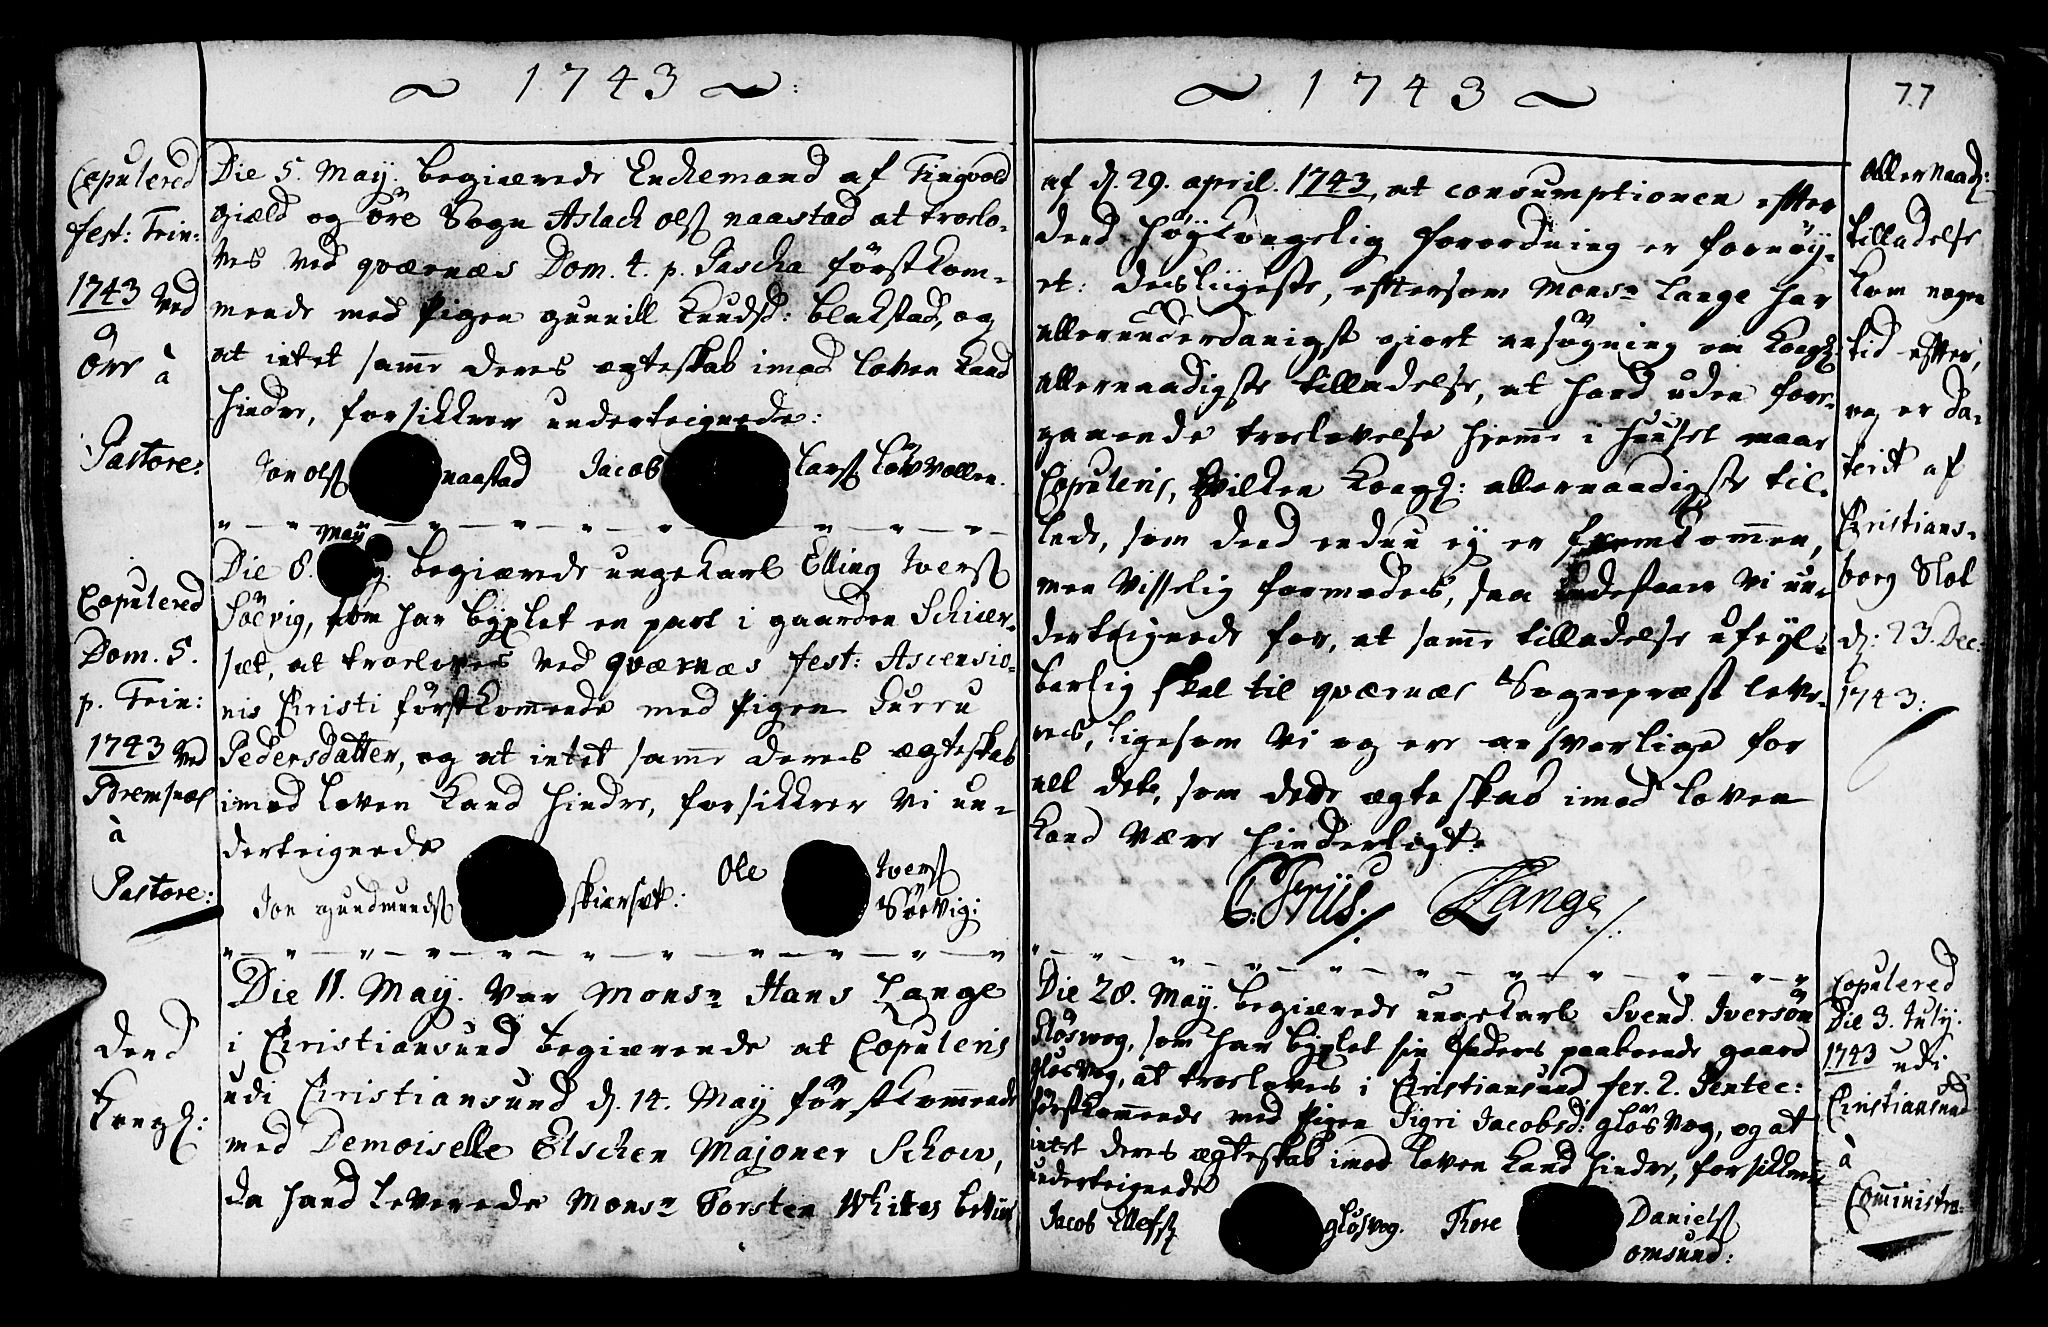 1743
Copulered
fest: Trin:
1743 ved
Öre à
Pastore:
Die 5. May. begierede Enckemand af Tingvold
gield og öre Sogn Aslach Ols naastad at trolo-
ves ved qværnæs Dom. 4. p. Pascha först kom-
mende med Pigen gunnill Knudsd: blakstad, og
at intet samme deres ægteskab imod loven kand
hindre, forsikkrer underteignede:
Jon Ols naastad Jacob Lars Lövvollen.
Copulered
Dom. 5.
p. Trin:
1743 ved
Bremsnæs
à
Pastore:
may
Die 8. begierede ungekarl Elling Ivers
Söevig, som har byxlet en part i gaarden Schier-
sæt, at troeloves ved qværnæs fest: Ascensio-
nis Christi förstkommende med Pigen Gurru
Pedersdatter, og at intet samme deres ægteskab
imod loven kand hindre, forsikkrer vi un-
derteignede
Jon gundmunds skiærsæt: Ole Ivers
Söevig:
Dend
Kongl:
Die 11. May. var Monsr Hans Lange
i Christiansund begierende at Copuleris
udi Christiansund d. 14. May förstkommende
med Demoiselle Elschen Majoner Schow,
da hand leverede Monsr Torsten Whittes beviis
1743
77
af d. 29. april. 1743, at consumptionen efter
dend höyKongelig forordning er fornöy-
et: desliigeste, eftersom Monsr Lange har
allerunderdanigst giort ansögning om Kongl:
allernaadigste tilladelse, at hand uden fore-
gaaende troelovelse hiemme i huuset maae
Copuleris, hvilken Kongl: allernaadigste til-
lade, som dend endnu ey er fremkommen,
men visselig formodes, saa indestaar vi un-
derteignede for, at samme tilladelse ufeyl-
barlig skal til qværnæs Sognepræst leve-
res, ligesom vi og ere ansvarlige for
alt dette, som dette ægteskab imod loven
kand være hinderligt.
C: Friis. Lange
Allernaadr:
tilladelse
kom nogen
tid efter,
og er da-
terit af
Christians-
borg Slot
d: 23. Dec:
1743:
Die 28. May. begierede ungekarl Svend Iversön
Glösvog, som har byxlet sin faders paaboende gaard
glösvog, at troeloves i Christiansund fer. 2. Pentec:
förstkommende med Pigen Sigri Jacobsd: glösvog, og at
intet deres ægteskab imod loven kand hindre, forsikkrer
underteignede
Jacob Ellefs glösvog. Thore Daniels
omsund:
Copulered
Die 3. July.
1743 udi
Christiansund
à
Cominist: